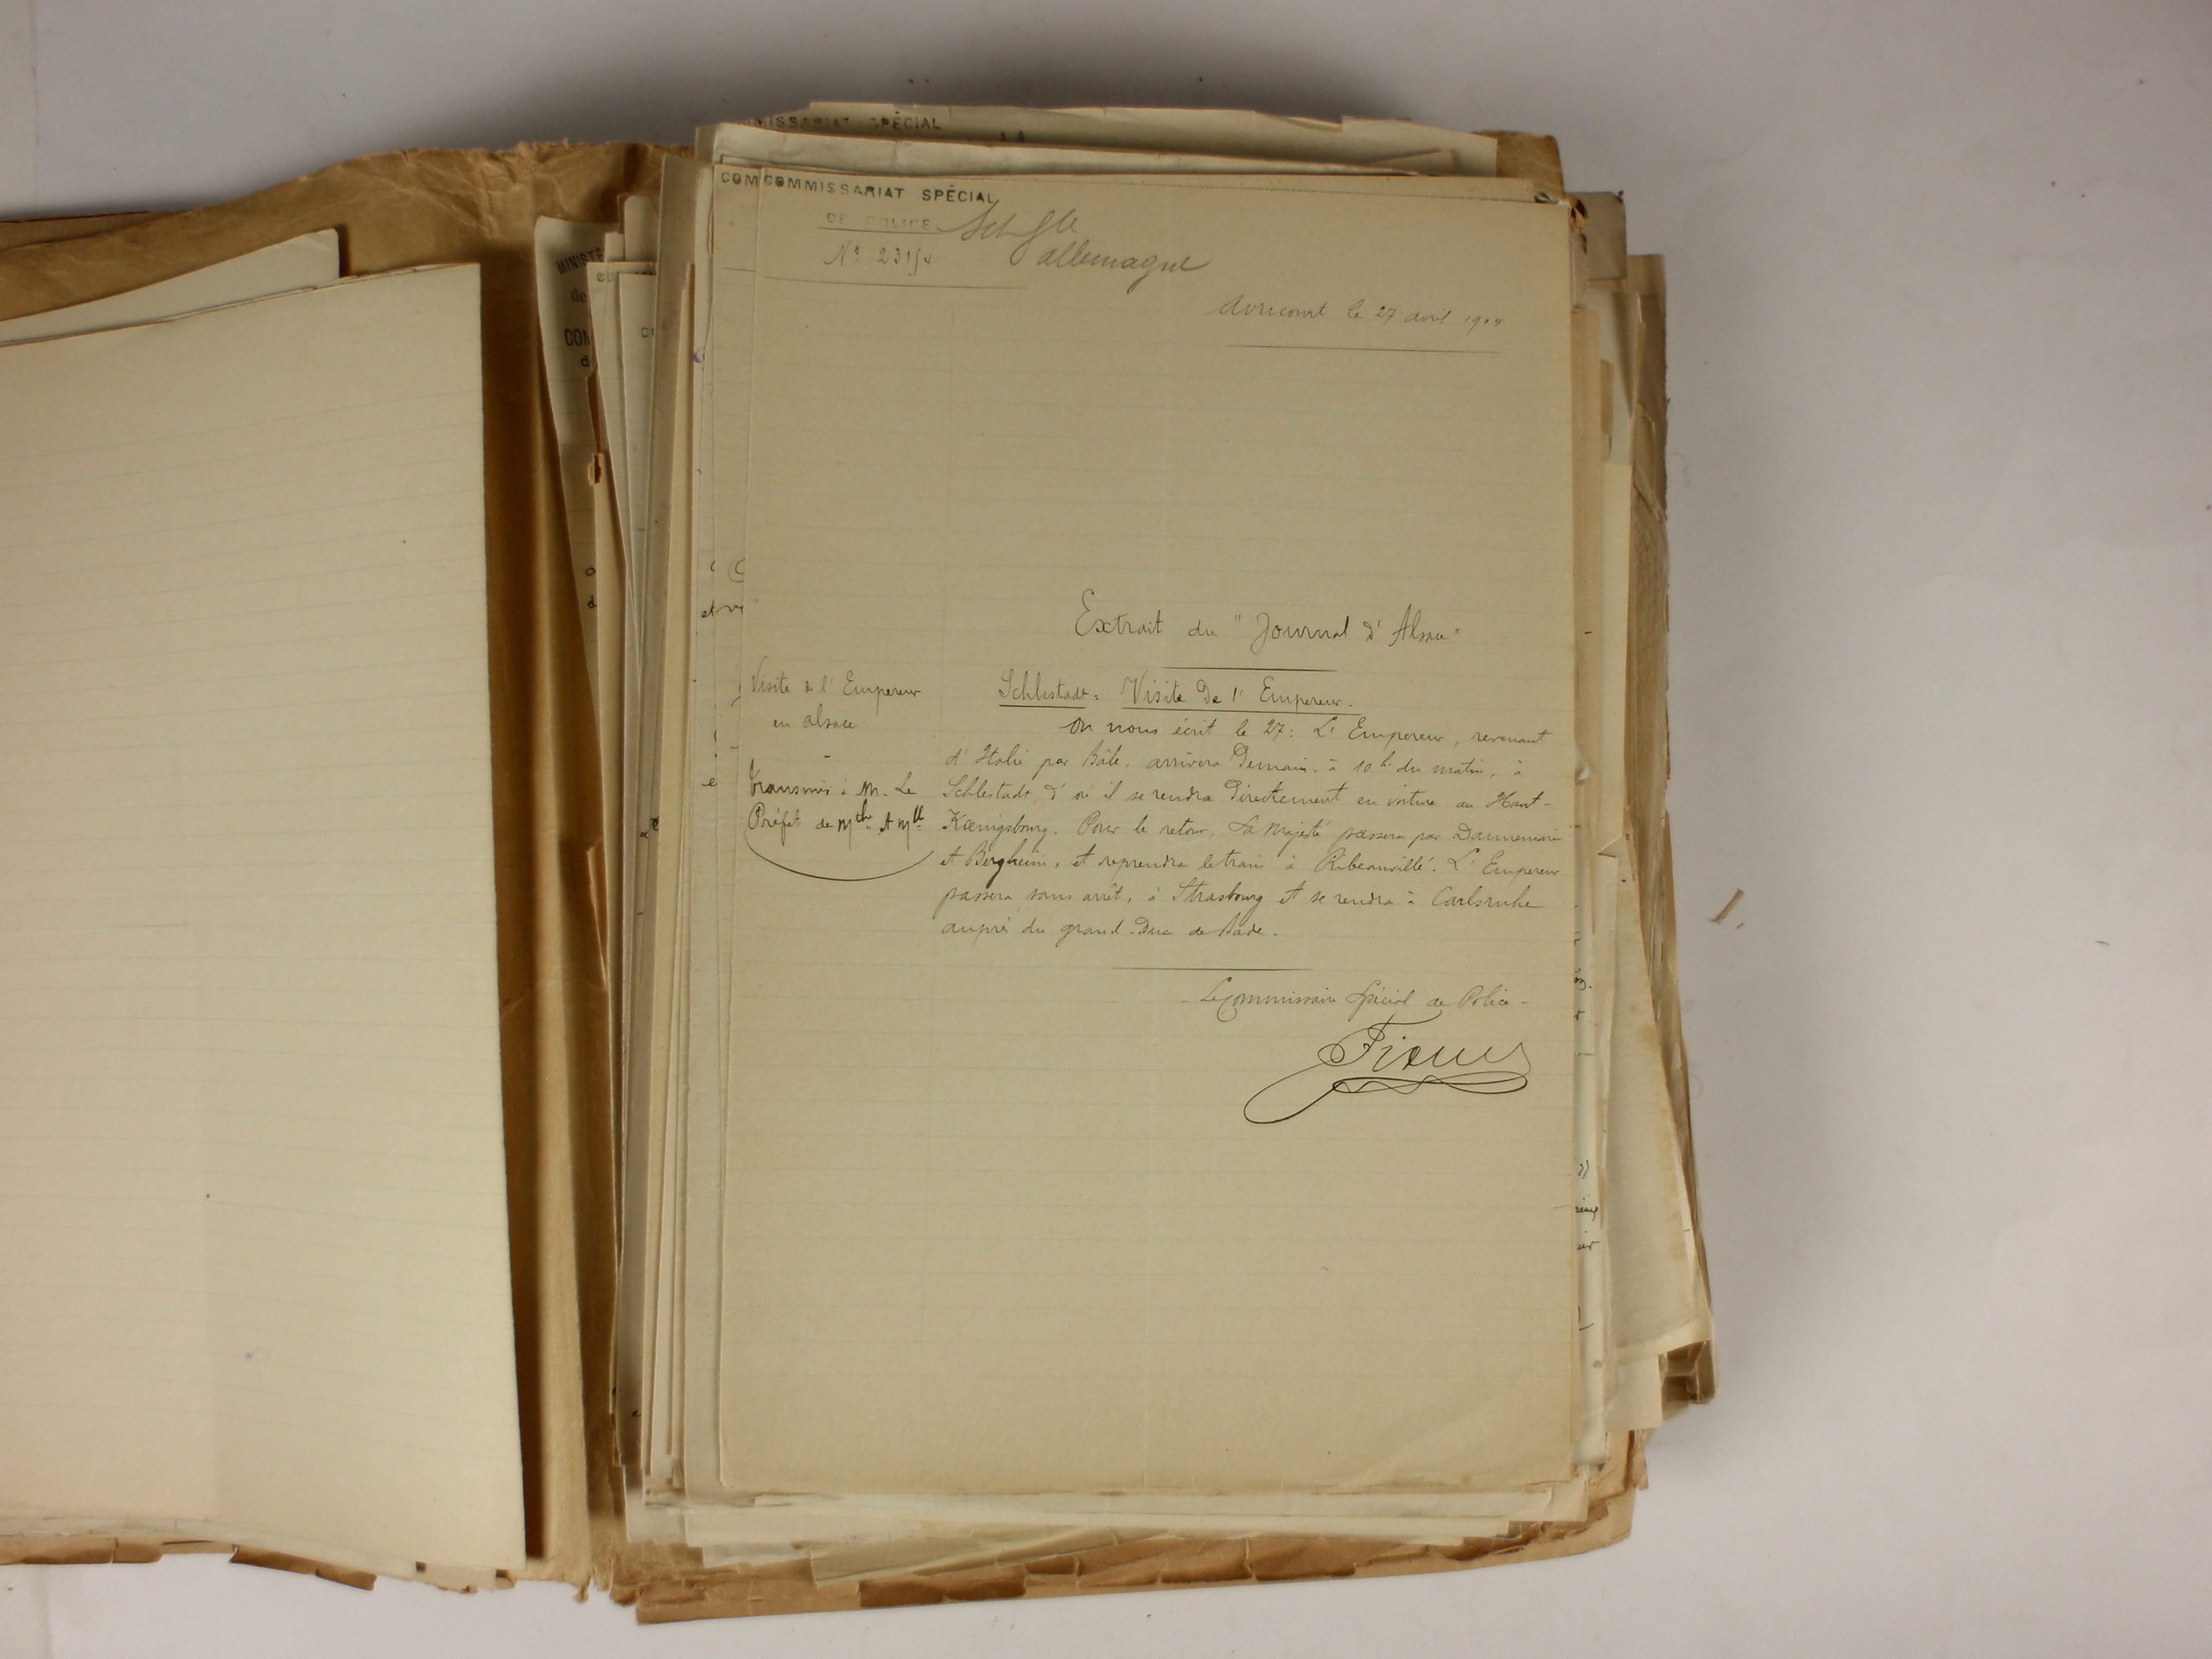 COMMISSARIAT SPÉCIAL
COMMISSARIAT SPÉCIAL
DE POLICE
Allemagne
Avricourt le 27 avril 1904
Extrait du "Journal d'Alsace"
Visite de l'Empereur
en alsace
Transmis à M. Le
Préfet de Mthe et Mlle
Schlestadt = Visite de l'Empereur.
On nous écrit le 27: L'Empereur, revenant
d'Italie par Bâle, arrivera demain, à 10 h. du matin, à
Schlestadt, d'où il se rendra directement en voiture au Haut-
Kœnigsbourg. Pour le retour, Sa Majesté passera par Dannemarie
et Bergheim, et reprendra le train à Ribeauvillé. L'Empereur
passera sans arrêt, à Strasbourg et se rendra à Carlsruhe
auprès du grand-Duc de Bade.
- Le Commissaire Spécial de Police -